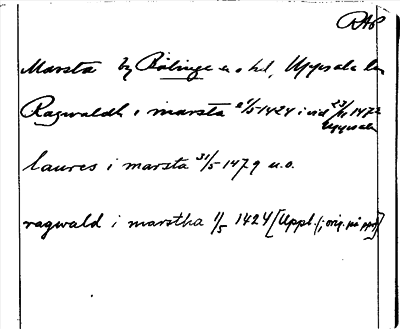 RAP
Marsta by Bälinge sn o hd, Uppsala län
Ragwaldh i marsta 1/5 1424 i vid 23/11 1472
Uppsala
laures i marsta 31/5 1479 u.o.
ragwald i marstha 1/5 1424 [Uppl. (; orig. på ppr)]